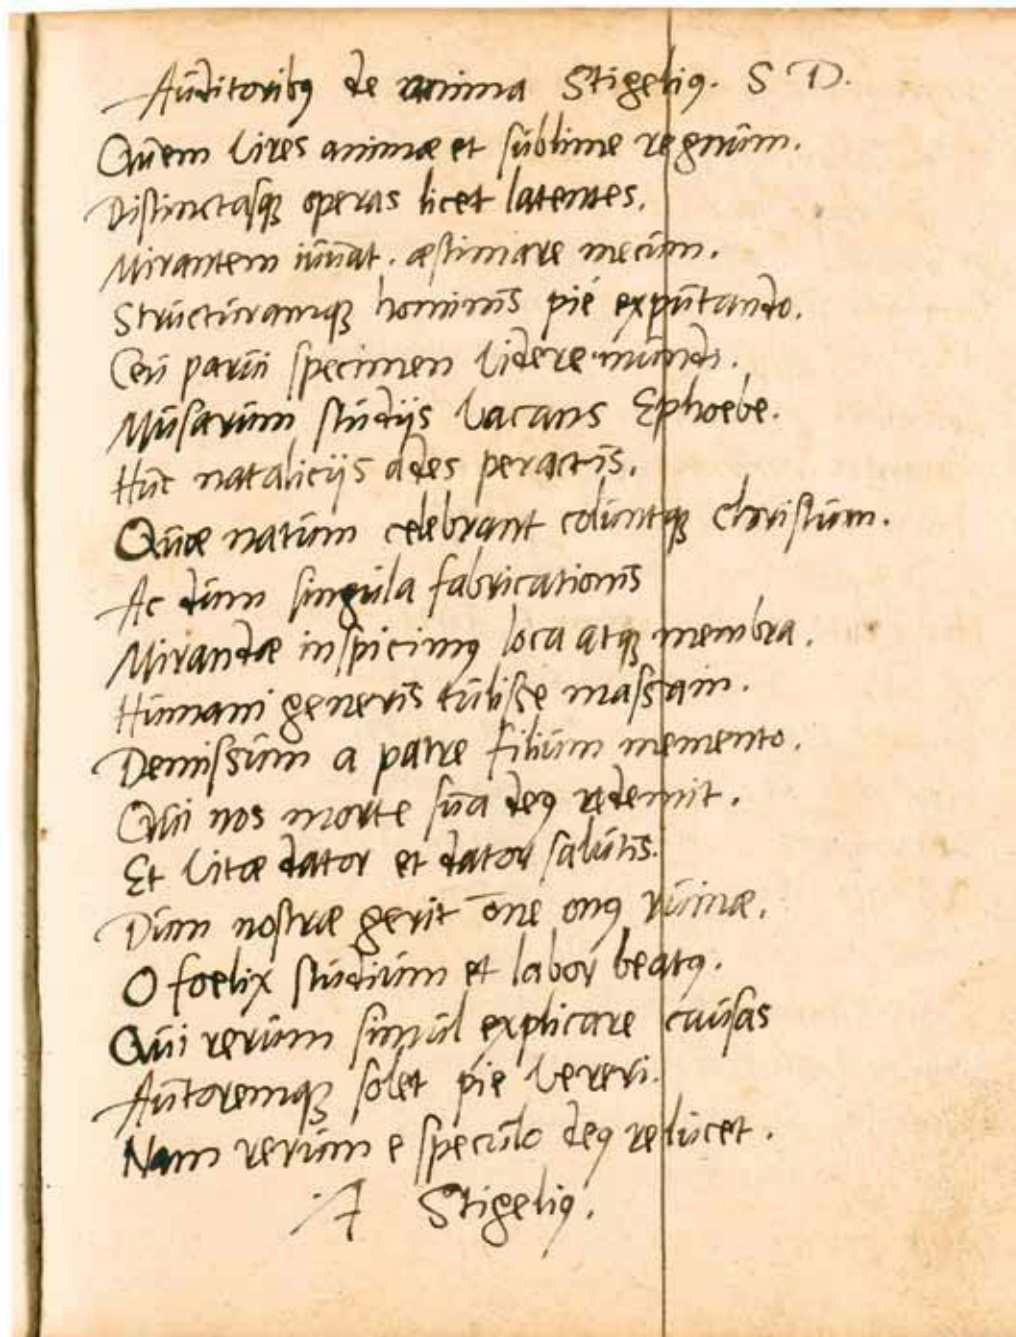 Auditoribꝰ de anima Stigeliꝰ. S D.
Quem vires animæ et sublime regnum.
Distinctasqꝫ operas licet latentes.
Mirantem iuuat. æstimare mecum.
Structuramqꝫ hominis pié expūtando.
Ceu parui specimen videre mundi.
Musarum studijs vacans Ephoebe.
Huc natalicijs ades peractis.
Quæ natum celebrant coluntqꝫ Christum.
Ac dum singula fabricationis
Mirandæ inspicimꝰ loca atqꝫ membra.
Humani generis tulisse massam.
Demissum a patre filium memento.
Qui nos morte sua deꝰ redemit.
Et vitæ dator et dator salutis.
Dum nostræ gerit om̄e onꝰ ruinæ.
O foelix studium et labor beatꝰ.
Qui rerum simul explicare causas
Autoremqꝫ solet pie vereri.
Nam rerum e speculo deꝰ relucet.
Stigeliꝰ.